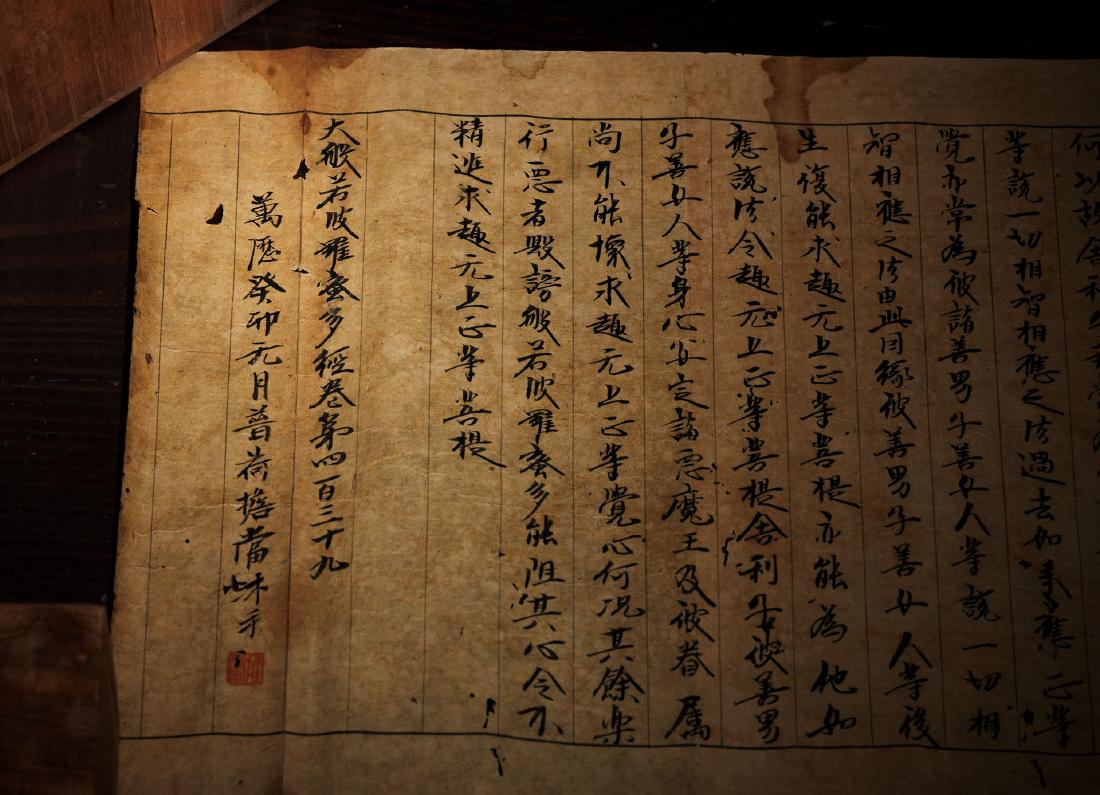 何以故舍利子
等說一切相智相應之法過去如來應正等
覺亦常為彼諸善男子善女人等說一切相
智相應之法由此因緣彼善男子善女人等後
生復能求趣无上正等菩提亦能為他如
應說法令趣无上正等菩提舍利子彼善男
子善女人等身心安定諸惡魔王及彼眷屬
尚不能壞求趣无上正等覺心何況其餘樂
行惡者毀謗般若波羅蜜多能阻其心令不
精進求趣无上正等菩提
大般若波羅蜜多經卷第四百三十九
萬歷癸卯元月普荷擔當沐手